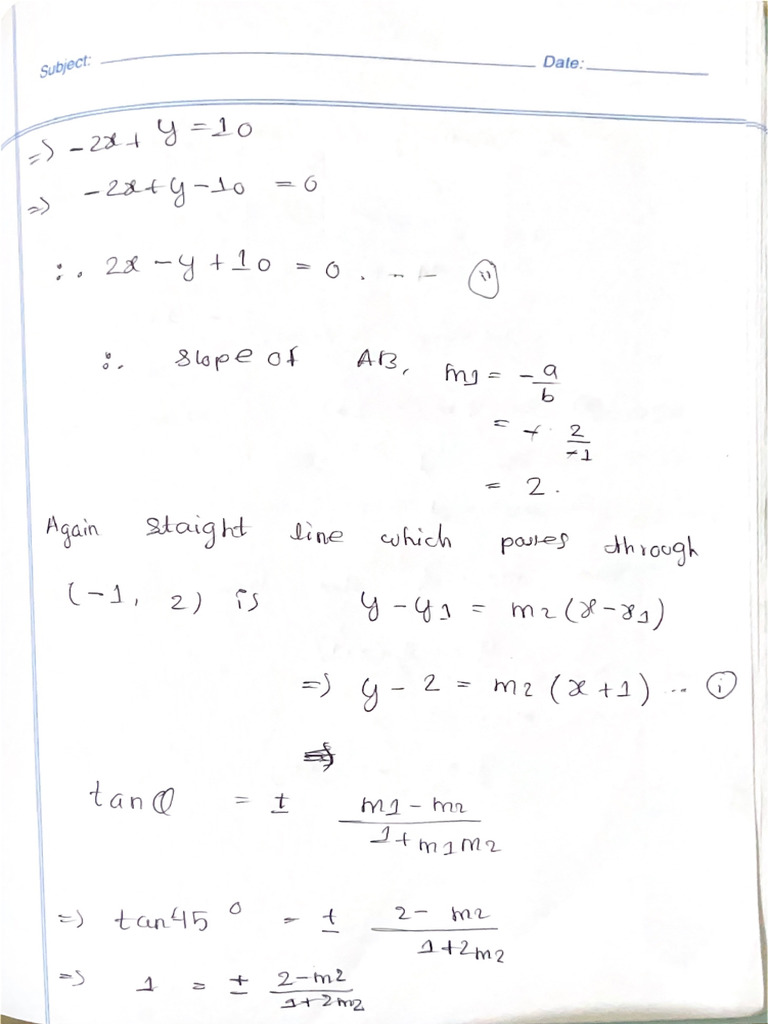 Subject: Date:
=> -2x + y = 10
=> -2x + y - 10 = 0
∴ 2x - y + 10 = 0 . -- -- (ii)
∴ slope of AB, m1 = - a/b
= + 2/-1
= 2.
Again staight line which passes through
(-1, 2) is y - y1 = m2 (x - x1)
=> y - 2 = m2 (x + 1) ... (i)
tanθ = ± (m1 - m2)/(1 + m1m2)
=> tan45° = ± (2 - m2)/(1 + 2m2)
=> 1 = ± (2 - m2)/(1 + 2m2)